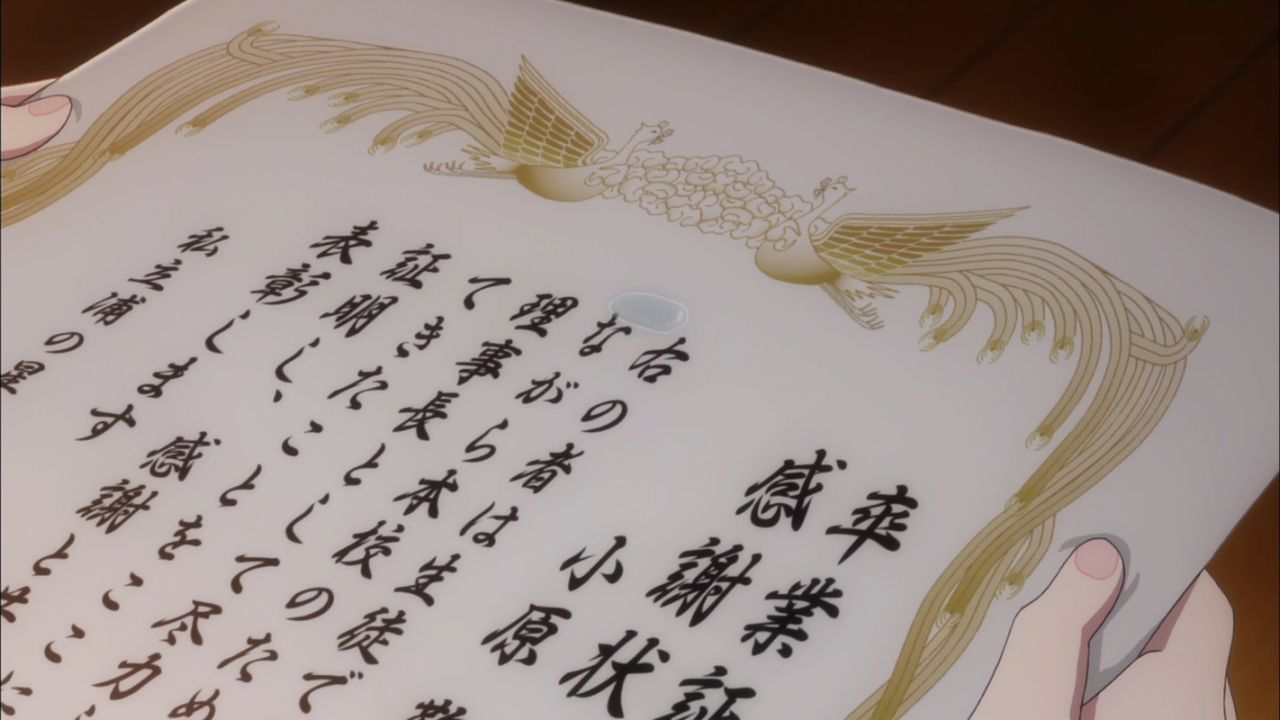 卒業証
感謝状
小原
右の者は生徒で
ながら本校のため
理事長として尽力
てきたことをここに
証明し、感謝と共
表彰します
私立浦の星